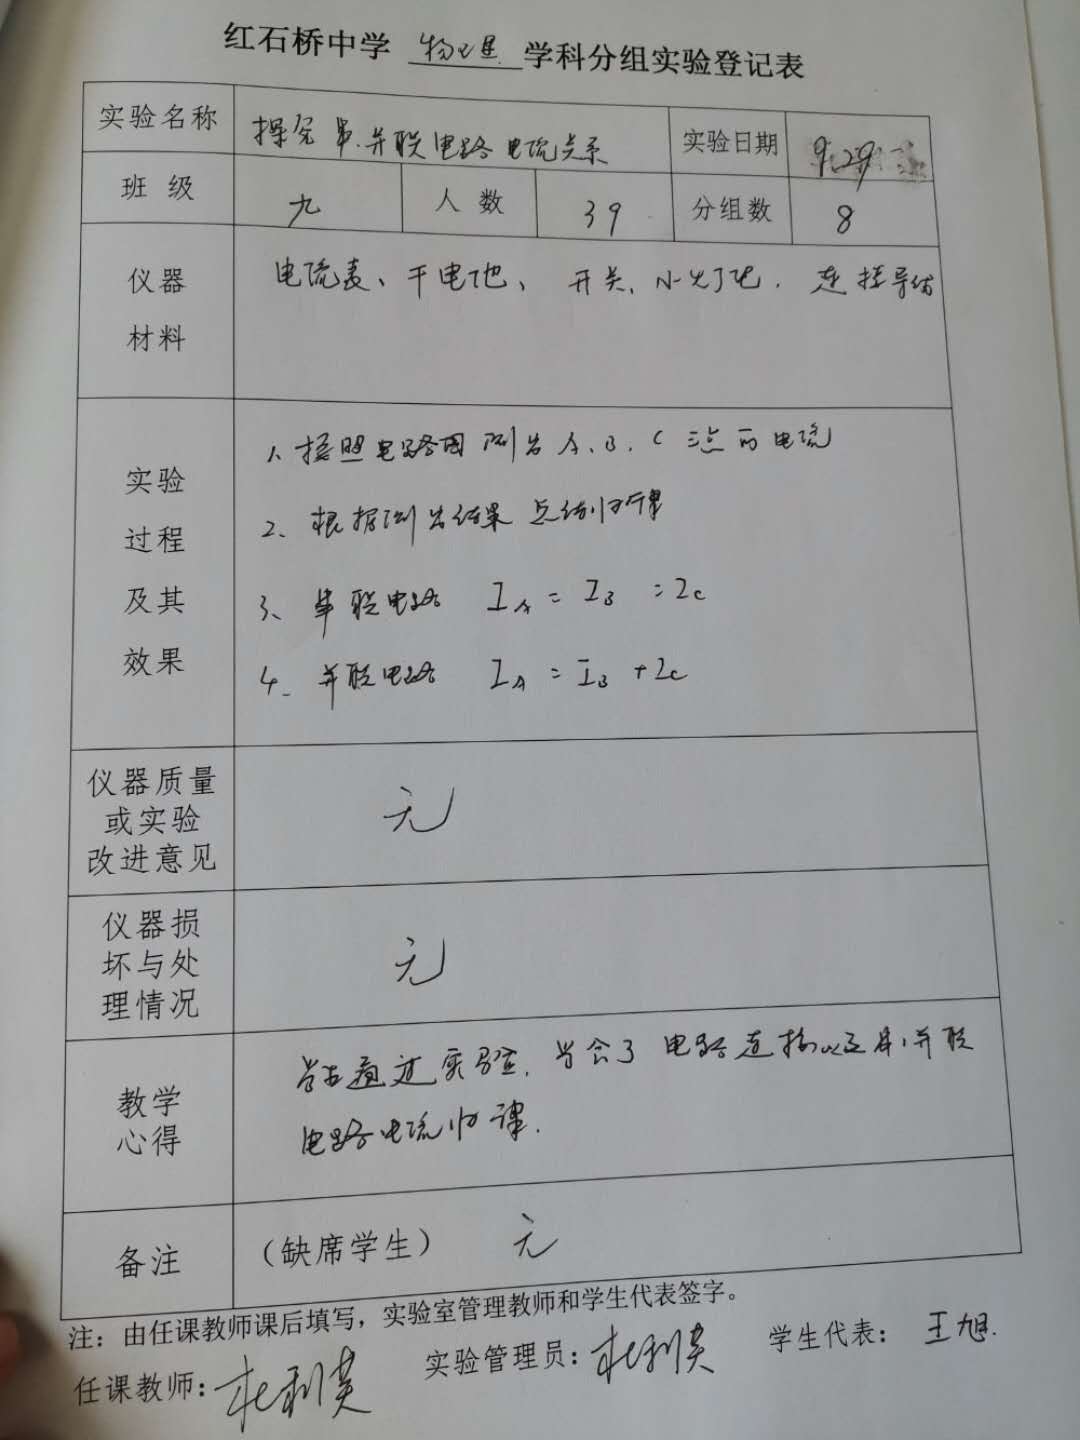 红石桥中学 物理 学科分组实验登记表
实验名称 探究串、并联电路电流关系 实验日期 9.29
班级 九 人数 39 分组数 8
仪器 电流表、干电池、开关、小灯泡、连接导线
材料
实验 1、按照电路图测出A、B、C三点的电流
过程 2、根据测出结果总结规律
及其 3、串联电路 IA=IB=IC
效果 4、并联电路 IA=IB+IC
仪器质量
或实验 无
改进意见
仪器损
坏与处 无
理情况
教学 学生通过实验，学会了电路连接以及串、并联
心得 电路电流规律.
备注 （缺席学生） 无
注：由任课教师课后填写，实验室管理教师和学生代表签字。
任课教师：杜利英 实验管理员：杜利英 学生代表：王旭.